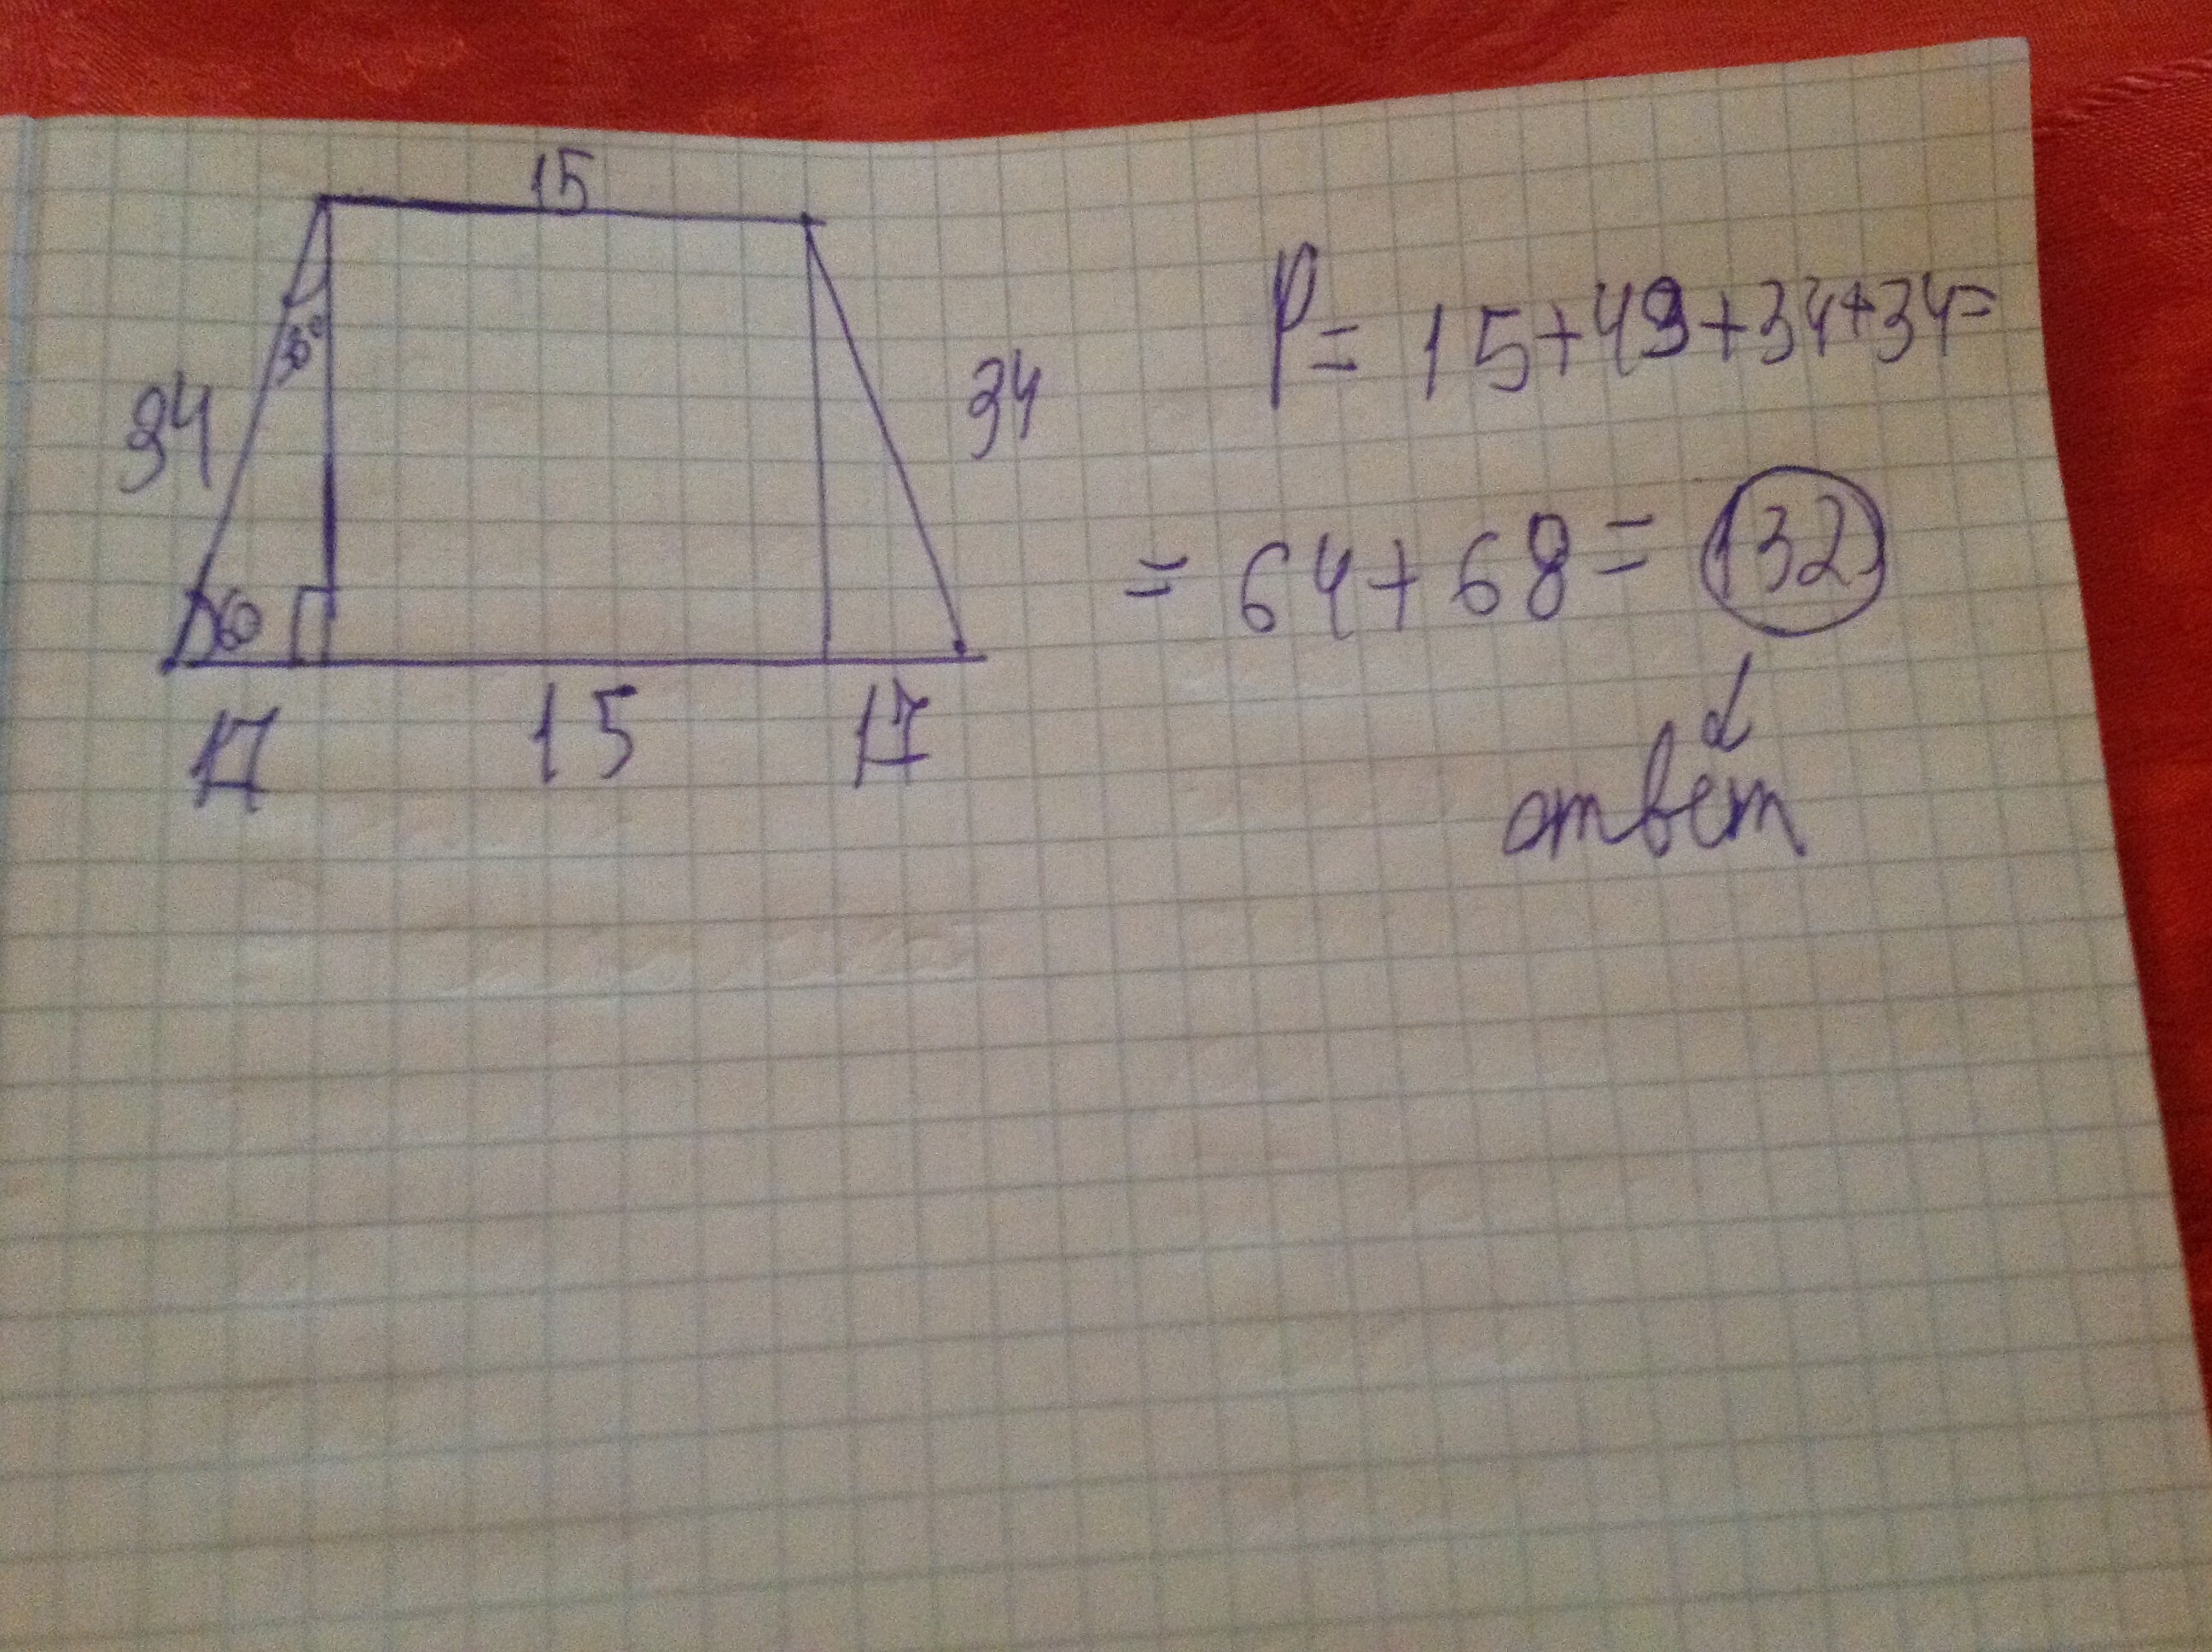 15
30°
34
34
60
17
15
17
P = 15+49+34+34=
= 64+68 = 132
ответ